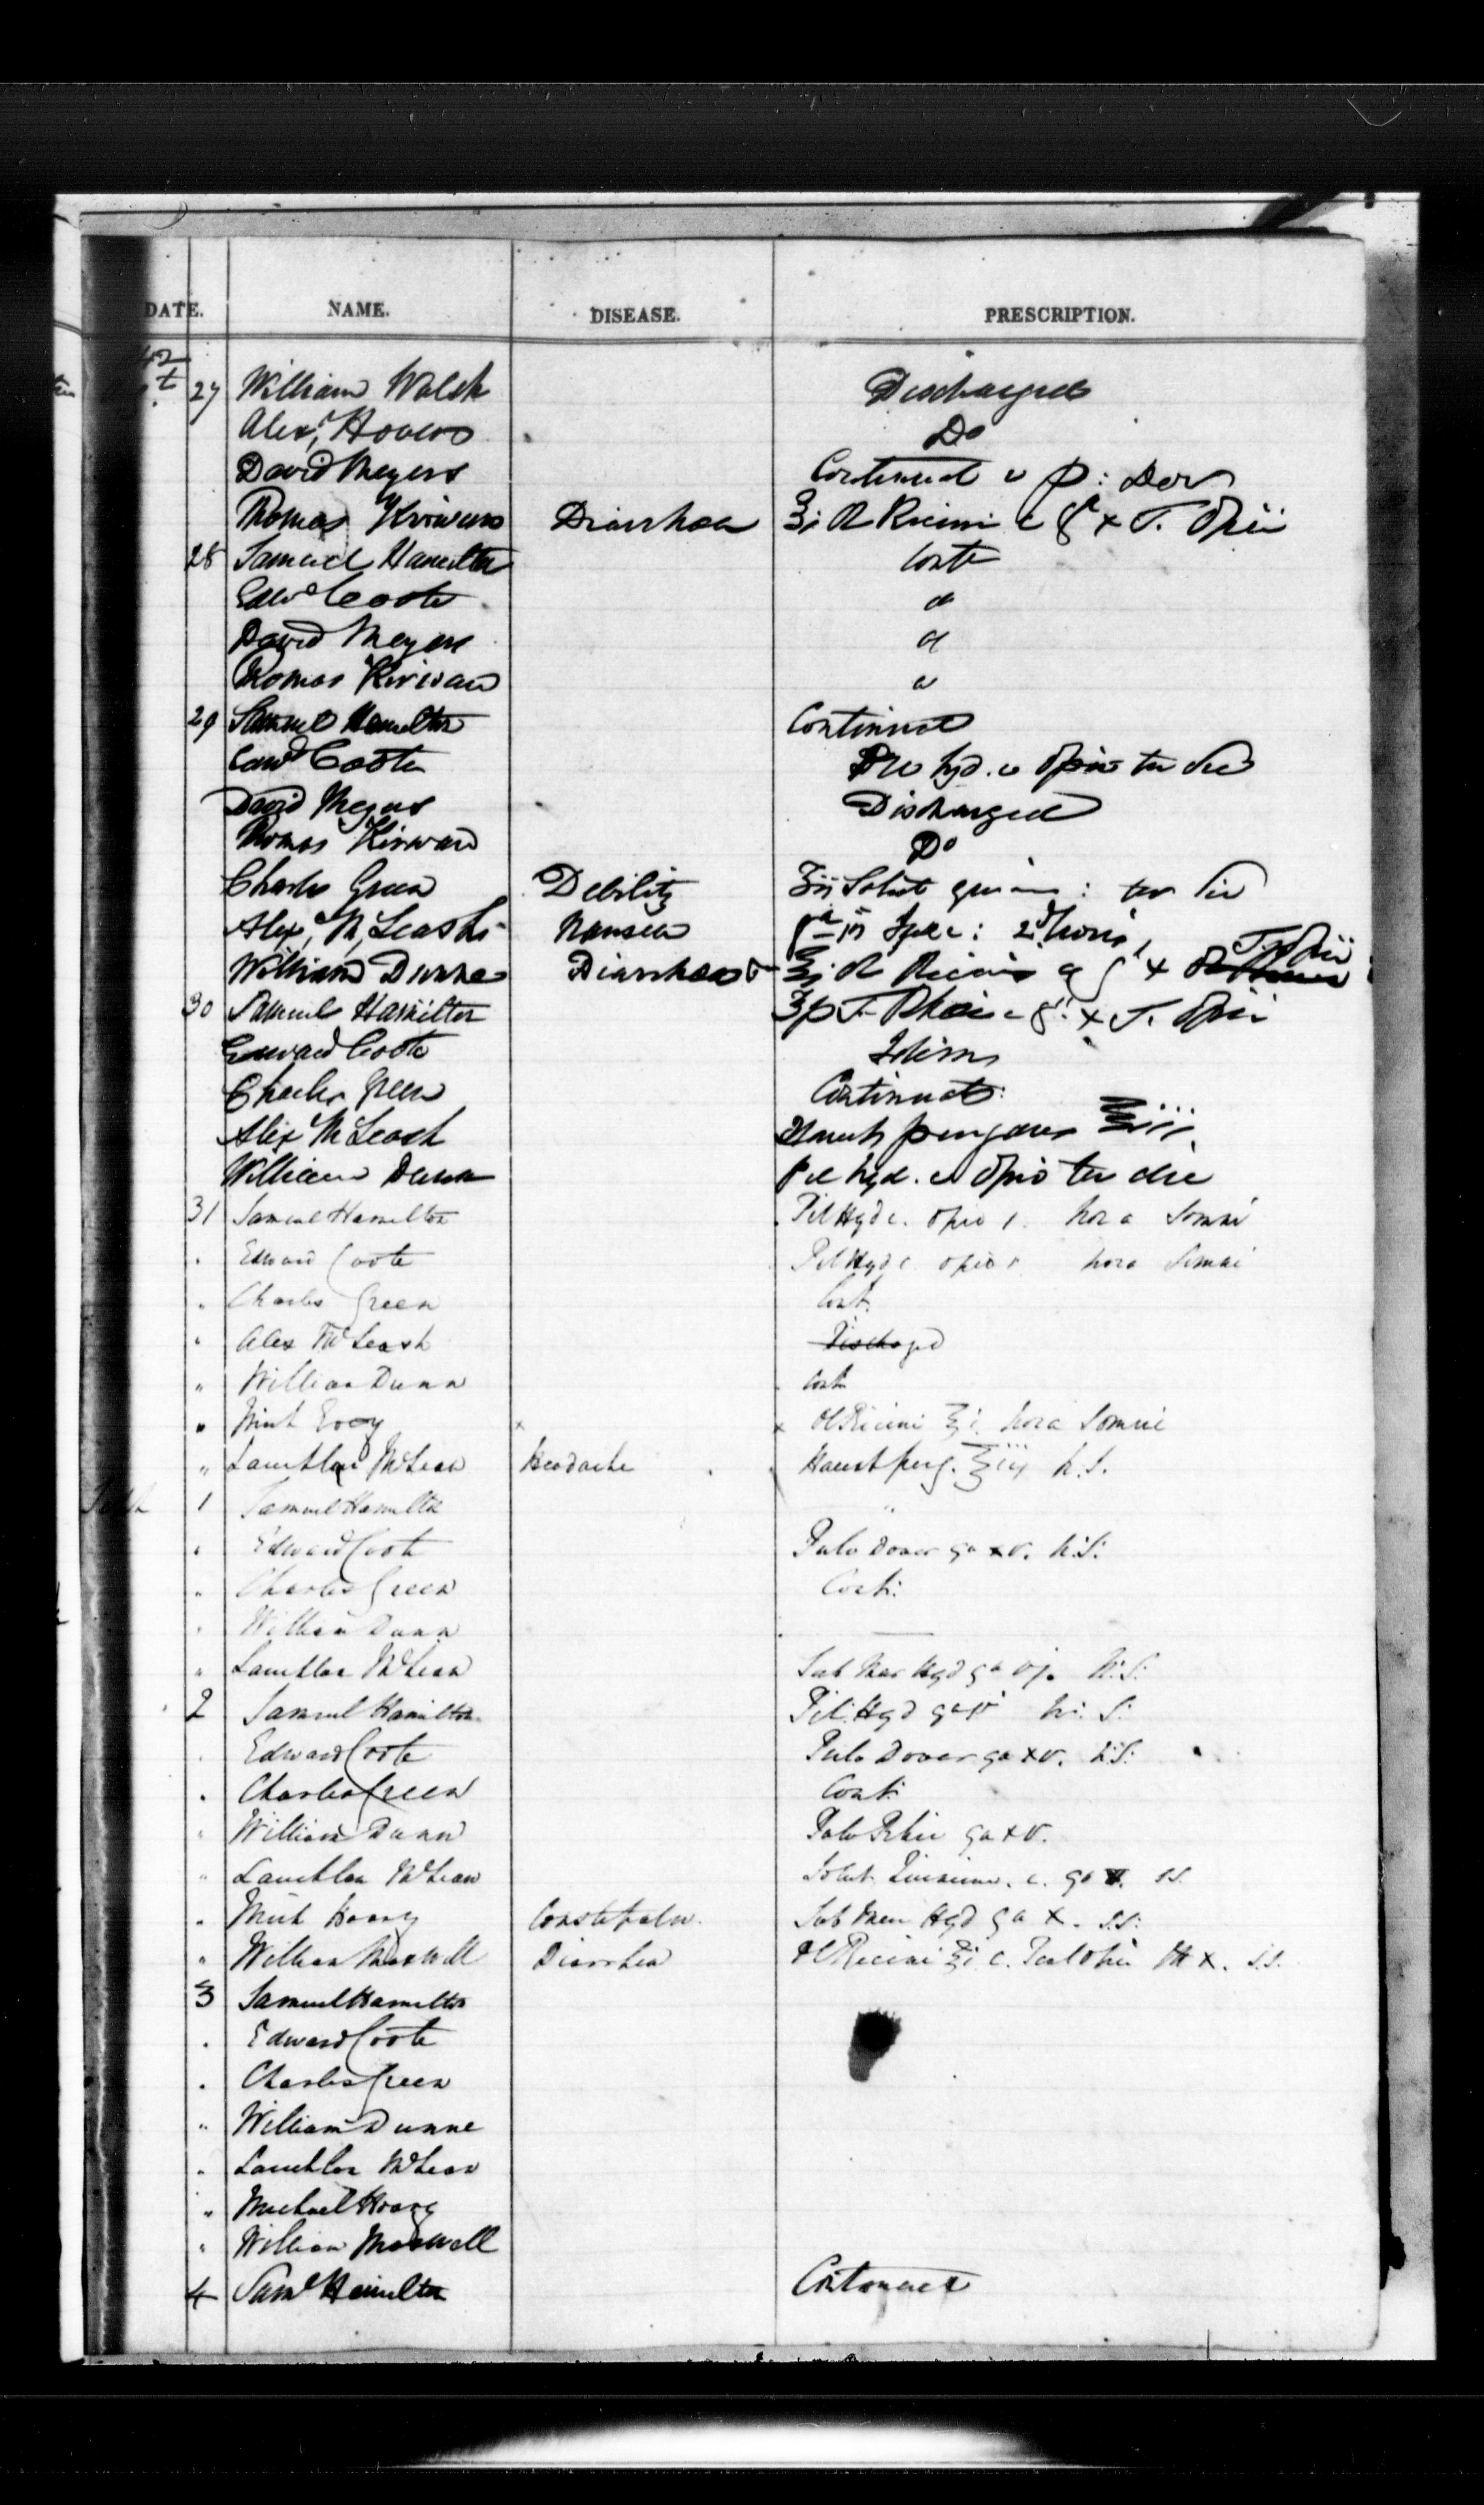 DATE. NAME. DISEASE. PRESCRIPTION.
42
27 William Walsh Discharged
Alexr Do
David Meyers Continuat
Thomas Kirwan Diarrhoea ʒi Ol Ricini c gr x T. Opii
28 Samuel Hamilton Cont
Edwd Coote do
David Meyers do
Thomas Kirwan do
29 Samuel Hamilton Continuat
Edwd Coote Pil hyd. c Opio ter die
David Meyers Discharged
Thomas Kirwan Do
Charles Green Debility Solut ter die
Alexr McLeash Nausea
William Dunne Diarrhoea ʒi Ol Ricini c g x T. Opii
30 Samuel Hamilton T. Rhei c g x T. Opii
Edward Coote Idem
Charles Green Continuat:
Alex McLeash Haust purgans ℥iii
William Dunn Pil hyd. c Opio ter die
31 Samuel Hamilton Pil Hyd c. Opio 1. hora Somni
" Edward Coote Pil Hyd c. Opio 1 hora Somni
" Charles Green Cont.
" Alex McLeash Dischaged
" William Dunn Cont
" x x Ol Ricini ℥i. hora Somni
" Lauchlan McLean Headache Haust purg. ℥iii h.S.
1 Samuel Hamilton "
" Edward Coote Pulv Dover ga xv. h.S.
" Charles Green Cont:
" William Dunn
" Lauchlan McLean Sub Mur Hyd ga vj. h.S.
2 Samuel Hamilton Pil. Hyd ga v h. S.
" Edward Coote Pulv Dover ga xv. h.S.
" Charles Green Cont.
" William Dunn Pulv Rhei ga xv.
" Lauchlan McLean Solut c. ga s.s.
" Mich Hoary Constipatn. Sub Mur Hyd ga x. s.s.
" William Maxwell Diarrhea Ol Ricini ℥i c. Tinct Opii x. s.s.
3 Samuel Hamilton
" Edward Coote
" Charles Green
" William Dunne
" Lauchlan McLean
" Michael Hoary
" William Maxwell
4 Saml Hamilton Continuat